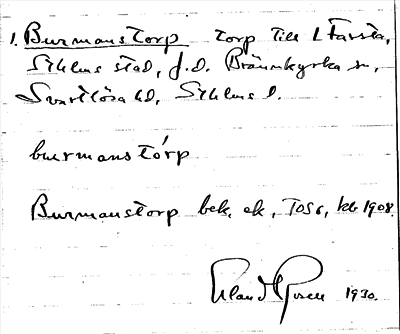 1. Burmanstorp torp till L Farsta,
Sthlms stad, f.d. Brännkyrka sn,
Svartlösa hd, Sthlms l.
burmanstórp
Burmanstorp bek. ek, TOSG, kb 1908.
Erland Rosell 1930.